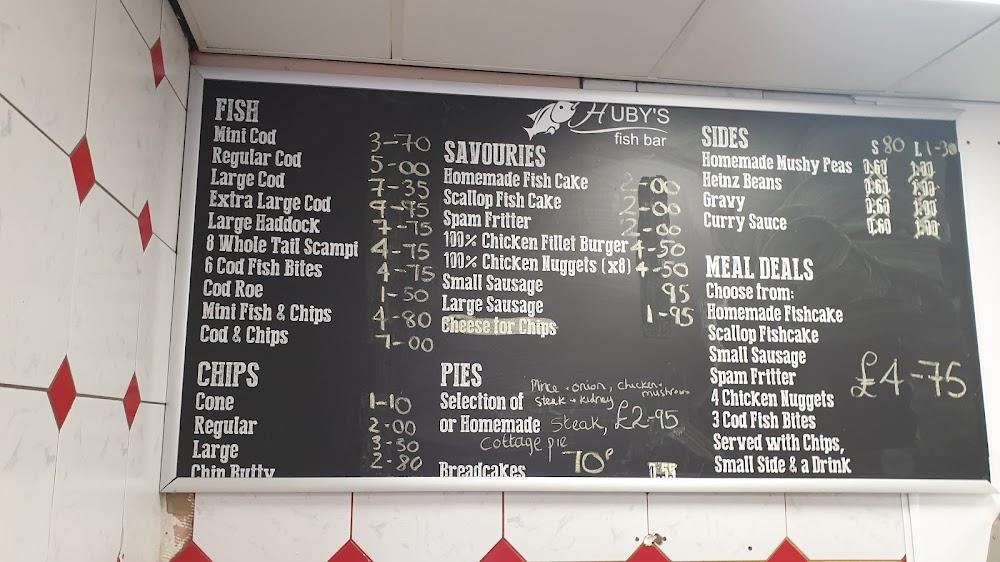 HUBY'S
fish bar
FISH
Mini Cod 3-70
Regular Cod 5-00
Large Cod 7-35
Extra Large Cod 9-95
Large Haddock 7-75
8 Whole Tail Scampi 4-75
6 Cod Fish Bites 4-75
Cod Roe 1-50
Mini Fish & Chips 4-80
Cod & Chips 7-00
CHIPS
Cone 1-10
Regular 2-00
Large 3-30
Chip Butty 2-80
SAVOURIES
Homemade Fish Cake 2-00
Scallop Fish Cake 2-00
Spam Fritter 2-00
100% Chicken Fillet Burger 4-50
100% Chicken Nuggets (x8) 4-50
Small Sausage 95
Large Sausage 1-95
Cheese for Chips
PIES
Mince + onion, chicken + mushroom
Selection of steak + kidney
or Homemade Steak, £2-95
Cottage pie
Breadcakes 70P 0.55
SIDES S 80 L 1-30
Homemade Mushy Peas 0.60 1.00
Heinz Beans 0.60 1.00
Gravy 0.60 1.00
Curry Sauce 0.60 1.00
MEAL DEALS
Choose from:
Homemade Fishcake
Scallop Fishcake
Small Sausage
Spam Fritter £4-75
4 Chicken Nuggets
3 Cod Fish Bites
Served with Chips,
Small Side & a Drink